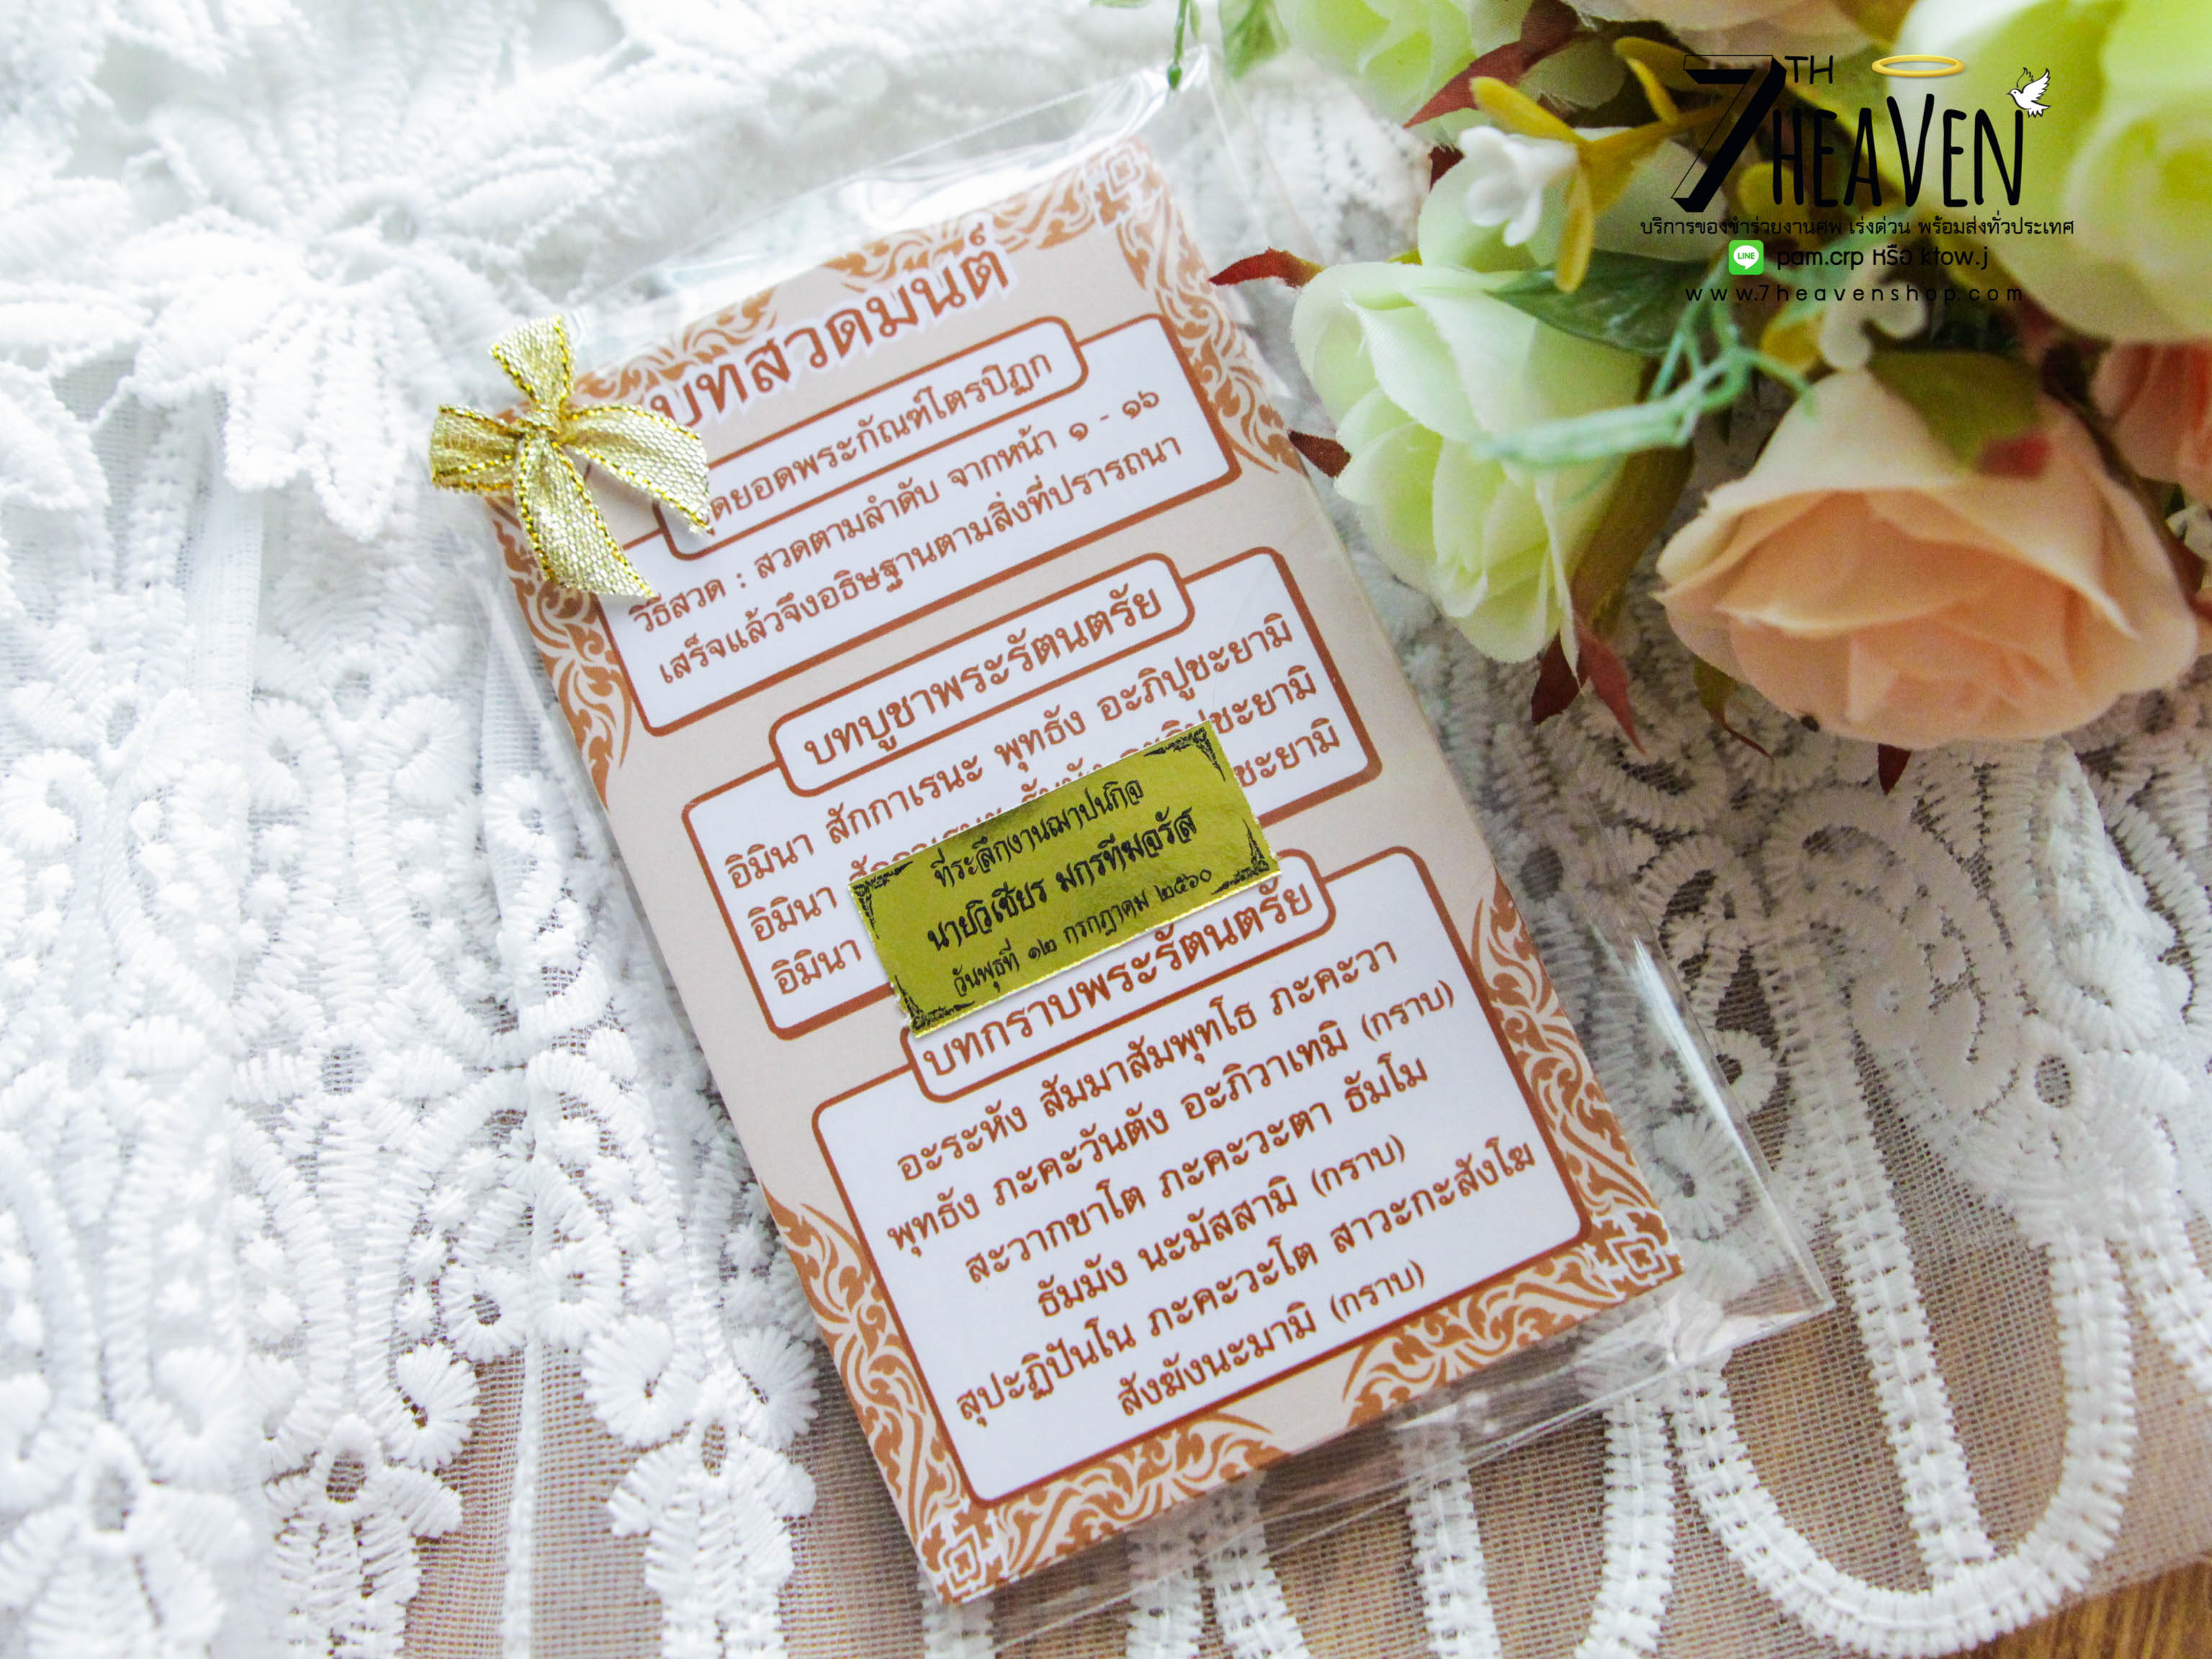 7TH
HEAVEN
บริการของชำร่วยงานศพ เร่งด่วน พร้อมส่งทั่วประเทศ
LINE pam.crp หรือ ktow.j
www.7heavenshop.com
บทสวดมนต์
ยอดพระกัณฑ์ไตรปิฎก
วิธีสวด : สวดตามลำดับ จากหน้า ๑ - ๑๖
เสร็จแล้วจึงอธิษฐานตามสิ่งที่ปรารถนา
บทบูชาพระรัตนตรัย
อิมินา สักกาเรนะ พุทธัง อะภิปูชะยามิ
อิมินา
อิมินา
ที่ระลึกงานฌาปนกิจ
นายวิเชียร มกรทีฆจรัส
วันพุธที่ ๑๒ กรกฎาคม ๒๕๖๐
บทกราบพระรัตนตรัย
อะระหัง สัมมาสัมพุทโธ ภะคะวา
พุทธัง ภะคะวันตัง อะภิวาเทมิ (กราบ)
สะวากขาโต ภะคะวะตา ธัมโม
ธัมมัง นะมัสสามิ (กราบ)
สุปะฏิปันโน ภะคะวะโต สาวะกะสังโฆ
สังฆังนะมามิ (กราบ)